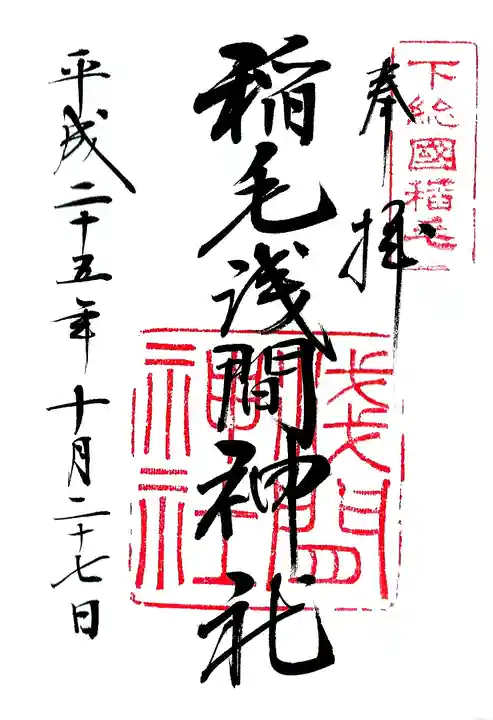 下総國稲毛
奉拝
稲毛浅間神社
浅間
神社
平成二十五年十月二十七日